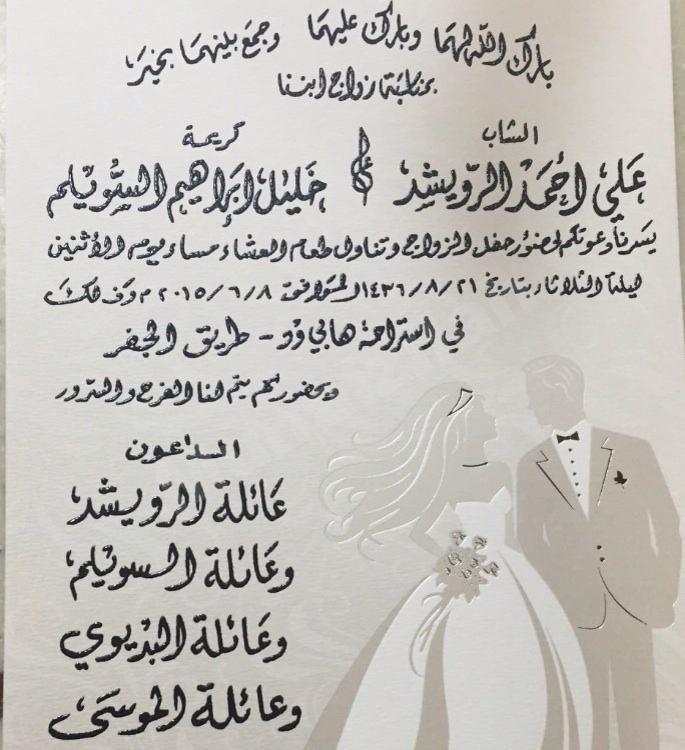 بارك الله لهما وبارك عليهما وجمع بينهما بخير
بمناسبة زواج ابننا
الشاب كريمة
علي أحمد الرويشد خليل إبراهيم السويلم
يسرنا دعوتكم لحضور حفل الزواج وتناول طعام العشاء مساء يوم الأثنين
ليلة الثلاثاء بتاريخ ١٤٣٦/٨/٢١ الموافق ٢٠١٥/٦/٨ م وذلك
في استراحة هابي دو - طريق الجفر
وبحضوركم يتم لنا الفرح والسرور
الداعون
عائلة الرويشد
وعائلة السويلم
وعائلة البديوي
وعائلة الموسى